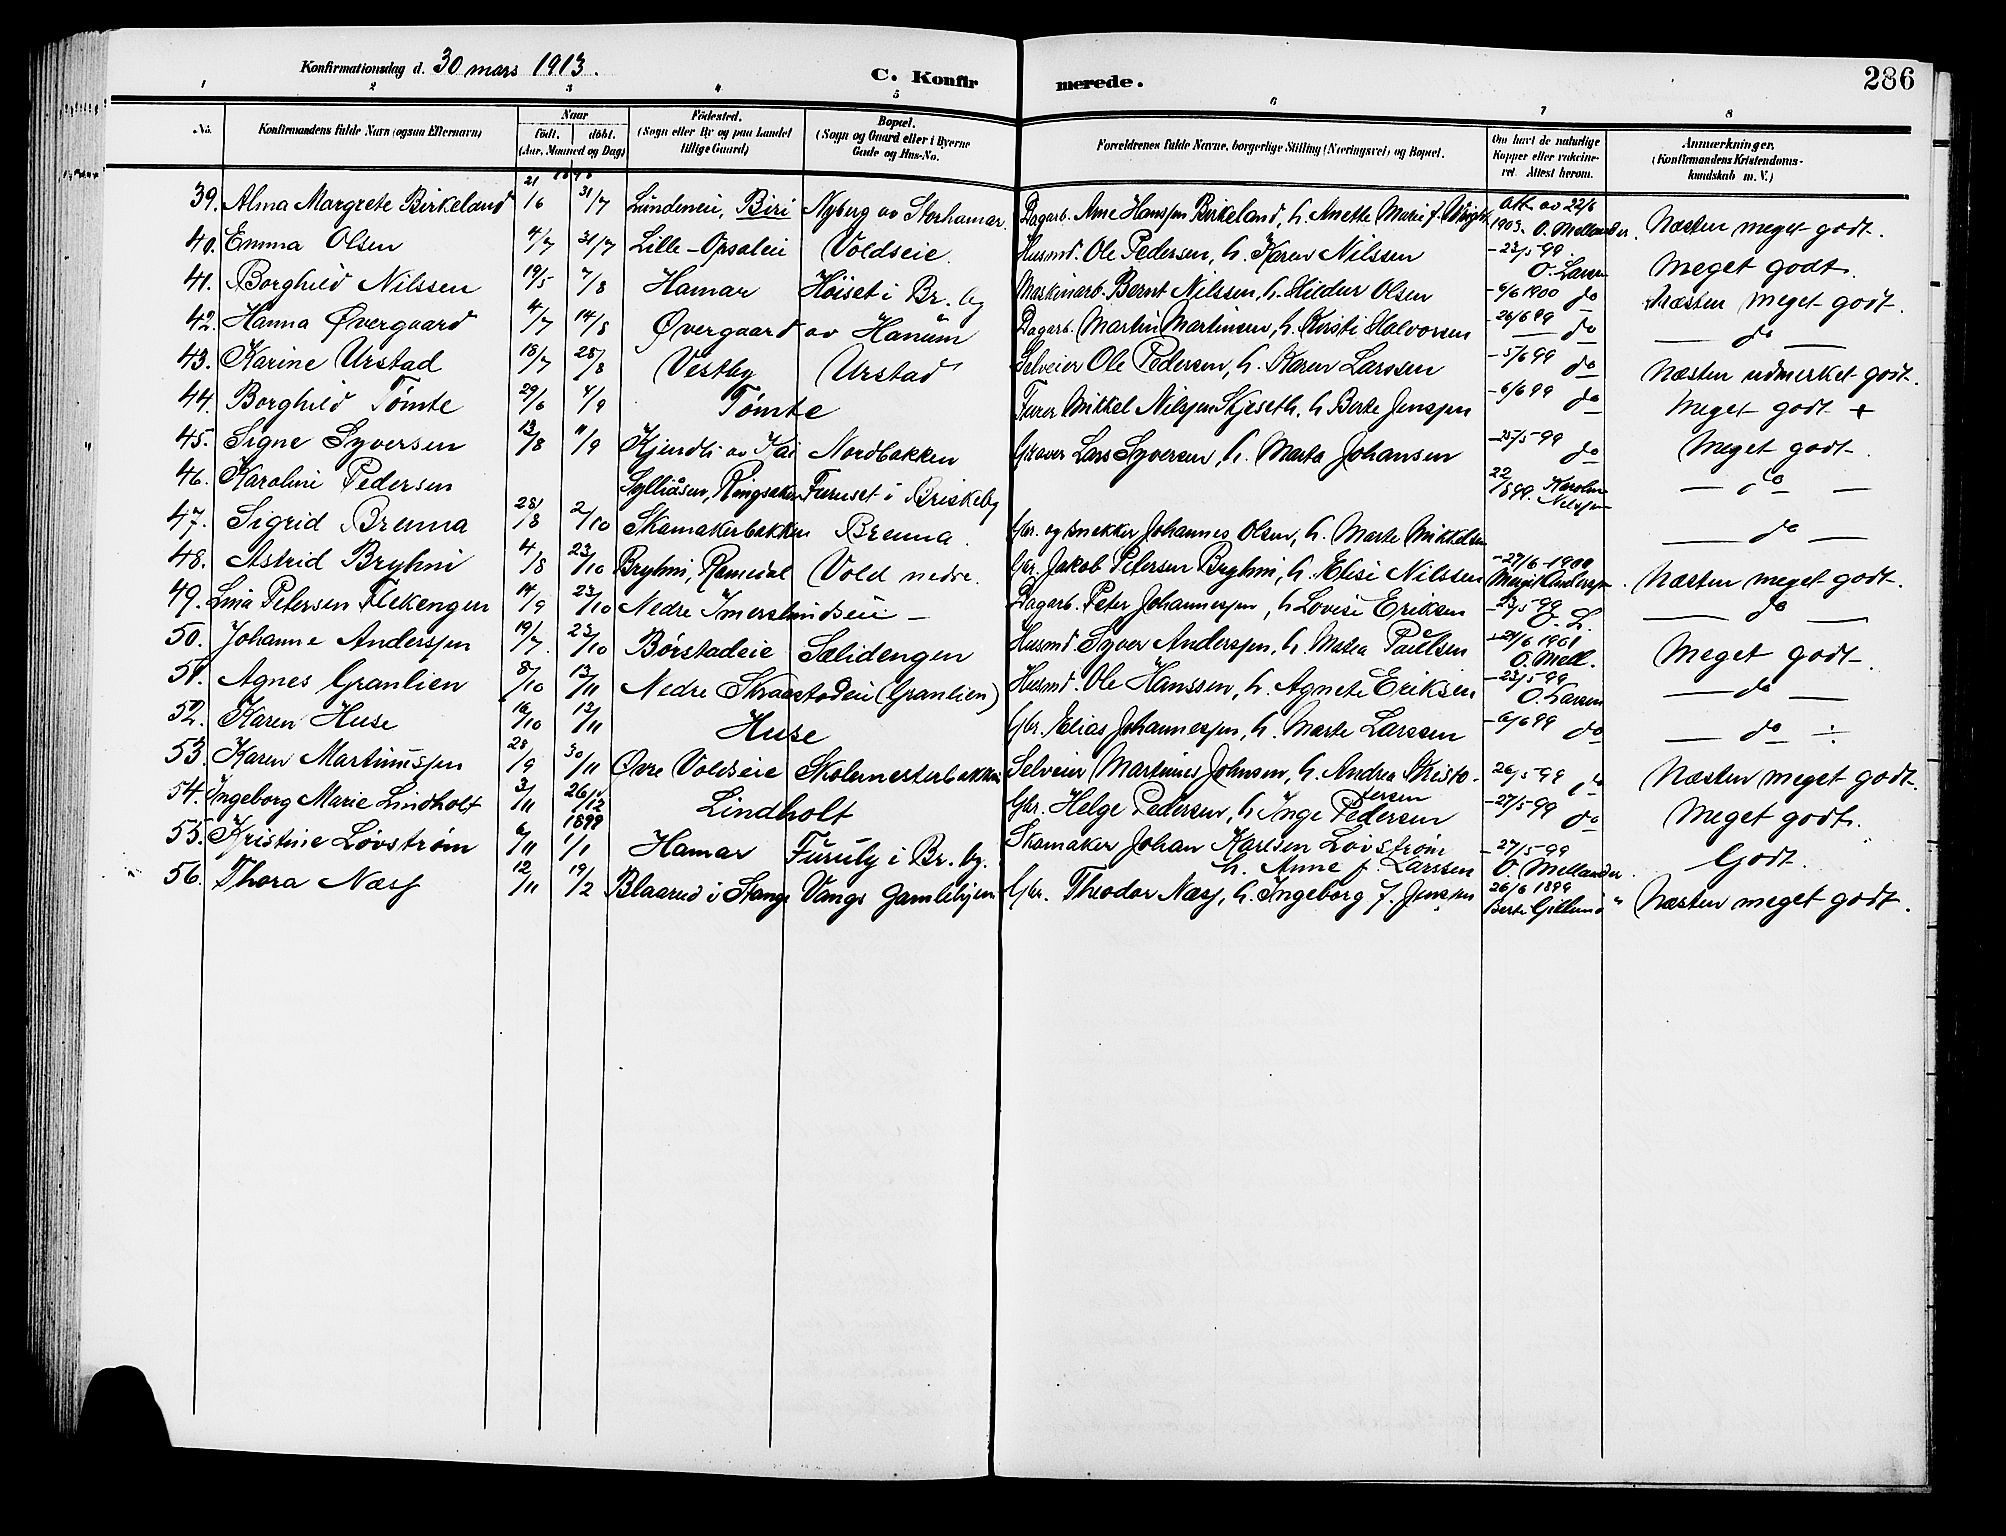 Konfirmationsdag d. 30 mars 1913.
C. Konfirmerede.
286
1 2 3 4 5 6 7 8
No. Konfirmandens fulde Navn (ogsaa Efternavn) Naar født. døbt. (Aar, Maaned og Dag) Fødested. (Sogn eller By og paa Landet tillige Gaard) Bopæl. (Sogn og Gaard eller i Byerne Gade og Hus-No. Forældrenes fulde Navne, borgerlige Stilling (Næringsvei) og Bopæl. Om havt de naturlige Kopper eller vakcineret. Attest herom. Anmærkninger. (Konfirmandens Kristendomskundskab m. V.)
1898
39. Alma Margrete Birkeland 21/6 31/7 Lundeneie, Biri Nyberg av Storhamar Dagarb. Arne Hanssen Birkeland, h. Anette Marie f. Att. av 22/6 1903. O. Mellander. Næsten meget godt.
40. Emma Olsen 4/7 31/7 Lille-Opsaleie Voldseie. Husmd. Ole Pedersen, h. Karen Nilssen - 23/5-99. O. Larsen Meget godt.
41. Borghild Nilssen 19/5 7/8 Hamar Høiset i Br. by Maskinarb. Bernt Nilssen, h. Hildur Olsen - 6/6 1900 do Næsten meget godt.
42. Hanna Øvergaard 4/7 14/8 Øvergaard av Hanum Dagarb. Martin Martinsen, h. Kirsti Halvorsen - 26/6 99 do — do —
43. Karine Urstad 18/7 28/8 Vestby Urstad Selveier Ole Pedersen, h. Karen Larssen - 5/6 99 do Næsten udmerket godt.
44. Borghild Tømte 29/6 4/9 Tømte Furer Mikkel Nilssen Skjeseth, h. Berte Jenssen - 6/6 99 do Meget godt +
45. Signe Syversen 13/8 11/9 Kjendli av Nordbakken Gbr Lars Syversen, h. Marta Johansen - 25/5-99 do Meget godt.
46. Karoline Pedersen Sylliåsen, Ringsaker Furuset i Briskeby 22/ 1899. Karoline Nilssen — do —
47. Sigrid Brenna 28/8 2/10 Skomakerbakken Brenna. Gbr. og snekker Johannes Olsen, h. Marte Mikkelsen — do —
48. Astrid Bryhni 4/8 23/10 Bryhni, Romedal Vold nedre. Gbr. Jakob Petersen Bryhni, h. Elise Nilssen - 27/6-1900 Næsten meget godt.
49. Lina Petersen Flekengen 14/9 23/10 Nedre Imerslundseie — Dagarb. Peter Johannessen, h. Lovise Eriksen - 23/5-99 O. L. — do —
50. Johanne Anderssen 19/7. 23/10 Børstadeie Sælidengen Husmd. Syver Anderssen, h. Matea Paulsen - 24/6 1901 O. Mell. Meget godt.
51. Agnes Granlien 8/10 13/11 Nedre Skraastadeie (Granlien) Husmd. Ole Hanssen, h. Agnete Eriksen - 23/5-99 O. Larsen — do —
52. Karen Huse 16/10 13/11 Huse Gbr. Elias Johannessen, h. Marte Larssen - 6/6 99 do — do — ÷
53. Karen Martinussen 28/9 30/11 Øvre Voldseie Skolemesterbakken Selveier Martinus Johnsen, h. Andrea Kristofersen 26/5-99 do Næsten meget godt.
54. Ingeborg Marie Lindholt 3/11 26/12 Lindholt Gbr. Helge Pedersen, h. Inge Pedersen - 27/5-99 do Meget godt.
1899
55. Kristine Løvstrøm 6/11 1/1 Hamar Furuly i Br. by. Skomaker Johan Karlsen Løvstrøm h. Anne f. Larssen - 27/5-99 O. Mellander. Godt.
56. Thora Næss 12/11 19/2 Blaarud i Stange Vangs Gamlehjem Gbr. Theodor Næss, h. Ingeborg f. Jenssen 26/6 1899 Berte Gillund Næsten meget godt.